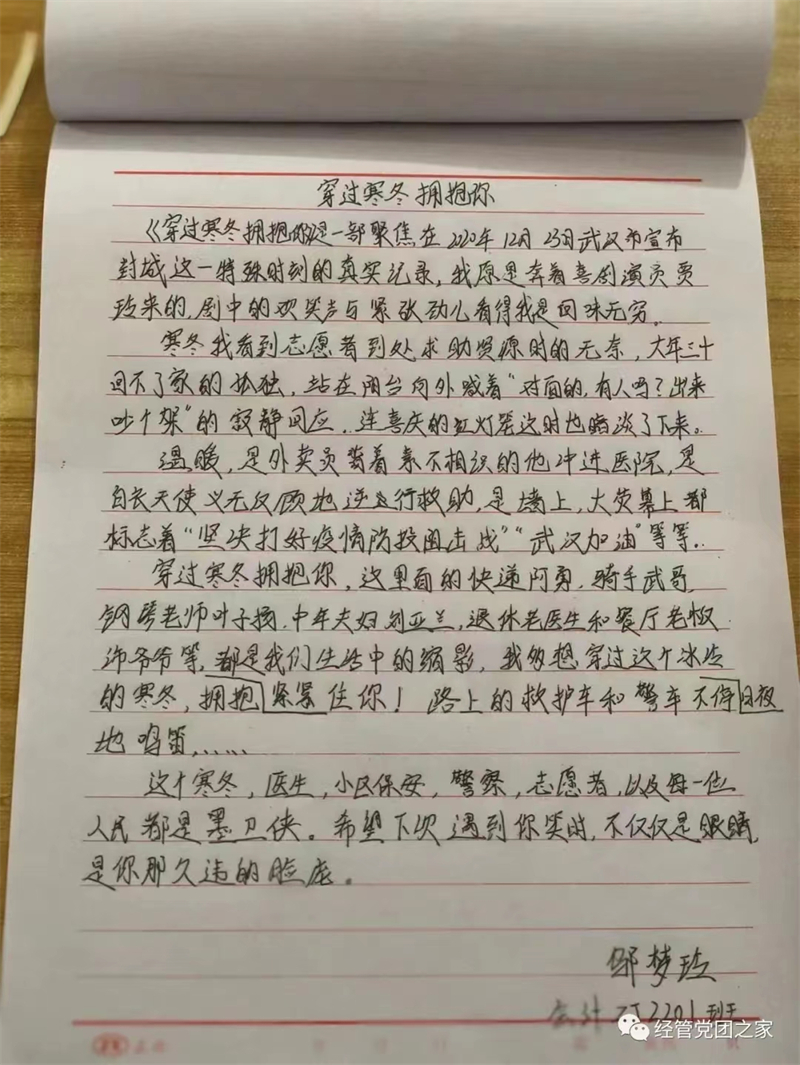 穿过寒冬拥抱你
《穿过寒冬拥抱你》是一部聚焦在2020年12月23日武汉市宣布
封城这一特殊时刻的真实记录,我原是奔着喜剧演员贾
玲来的,剧中的欢笑声与紧张劲儿看得我是回味无穷。
寒冬我看到志愿者到处求助资源时的无奈,大年三十
回不了家的孤独,站在阳台向外喊着“对面的,有人吗?出来
吵个架”的寂静回应,连喜庆的红灯笼这时也暗淡了下来。
温暖,是外卖员背着素不相识的他冲进医院,是
白衣天使义无反顾地逆行救助,是墙上,大荧幕上都
标志着“坚决打好疫情防控阻击战”“武汉加油”等等.
穿过寒冬拥抱你,这里面的快递阿勇,骑手武哥,
钢琴老师叶子扬,中年夫妇刘亚兰,退休老医生和餐厅老板
沛爷爷等,都是我们生活中的缩影,我多想穿过这个冰冷
的寒冬,拥抱紧紧住你!路上的救护车和警车不停日夜
地鸣笛......
这个寒冬,医生,小区保安,警察,志愿者,以及每一位
人民都是墨卫侠。希望下次遇到你笑时,不仅仅是眼睛,
是你那久违的脸庞。
邹梦玲
会计 2201班
经管党团之家